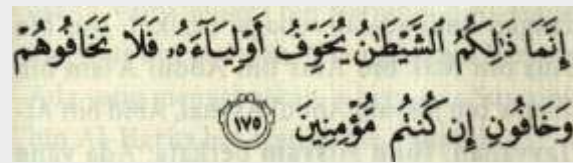 إِنَّمَا ذَٰلِكُمُ ٱلشَّيْطَٰنُ يُخَوِّفُ أَوْلِيَآءَهُۥ فَلَا تَخَافُوهُمْ
وَخَافُونِ إِن كُنتُم مُّؤْمِنِينَ ١٧٥